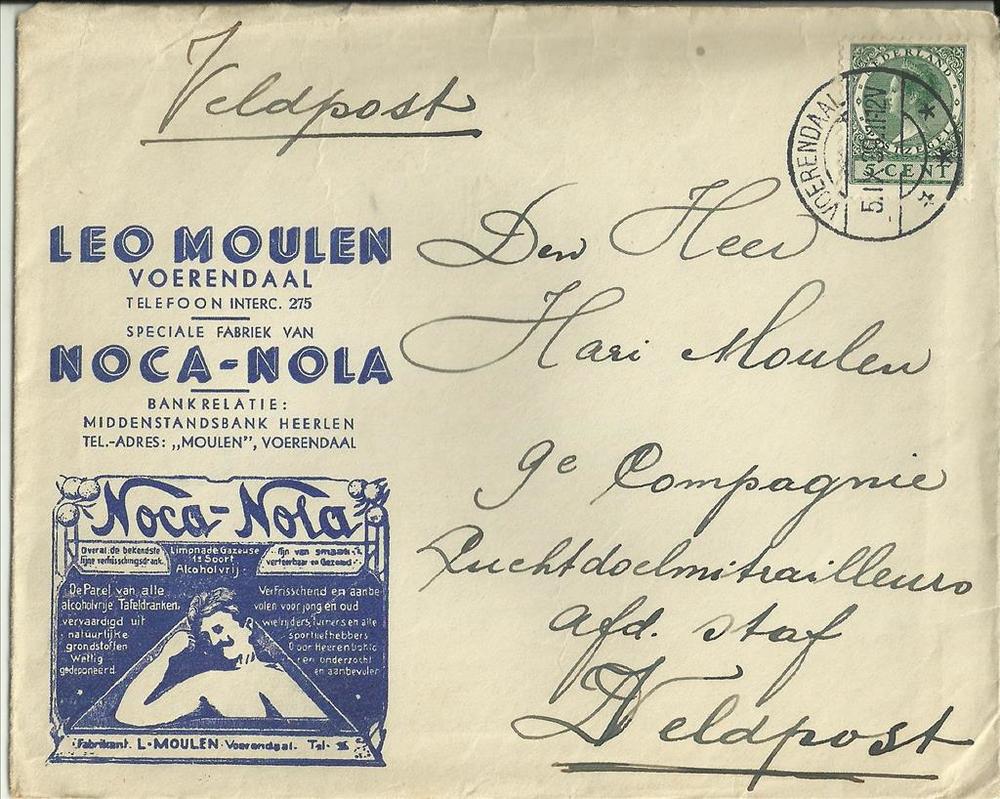 Veldpost
NEDERLAND
POSTZEGEL
5 CENT
VOERENDAAL
LEO MOULEN
VOERENDAAL
TELEFOON INTERC. 275
SPECIALE FABRIEK VAN
NOCA-NOLA
BANKRELATIE:
MIDDENSTANDSBANK HEERLEN
TEL.-ADRES: „MOULEN”, VOERENDAAL
Den Heer
Hari Moulen
9e Compagnie
Luchtdoelmitrailleurs
afd. staf
Veldpost
Noca-Nola
Overal de bekendste
fijne verfrisschingsdrank.
Limonade Gazeuse
1e Soort
Alcoholvrij
fijn van smaak
De Parel van alle
alcoholvrije Tafeldranken,
vervaardigd uit
natuurlijke
grondstoffen
Wettig
gedeponeerd
Verfrisschend en aanbe
volen voor jong en oud
wielrijders, Turners en alle
sportliefhebbers
Door Heeren
en onderzocht
en aanbevolen
Fabrikant L. MOULEN Voerendaal. Tel.